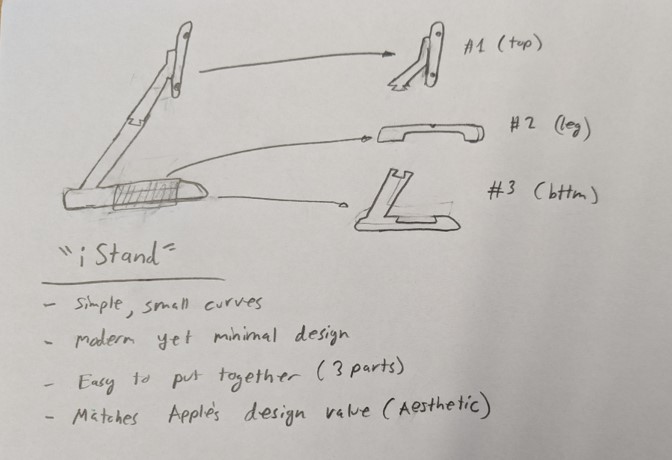 #1 (top)
#2 (leg)
#3 (bttm)
"i Stand"
- Simple, small curves
- modern yet minimal design
- Easy to put together (3 parts)
- Matches Apple's design value (Aesthetic)